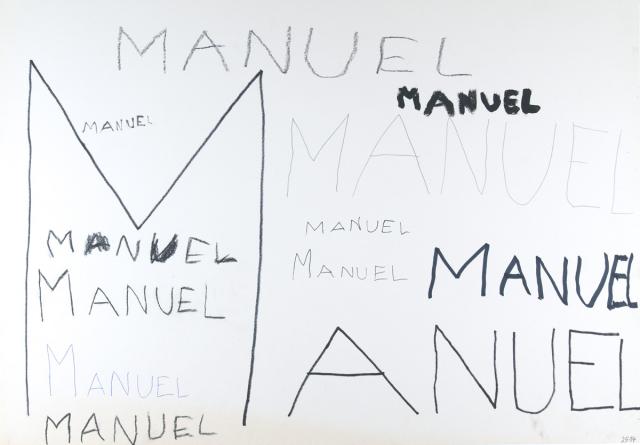 MANUEL
MANUEL
MANUEL
MANUEL
MANUEL
MANUEL
MANUEL
MANUEL
MANUEL
MANUEL
MANUEL
MANUEL